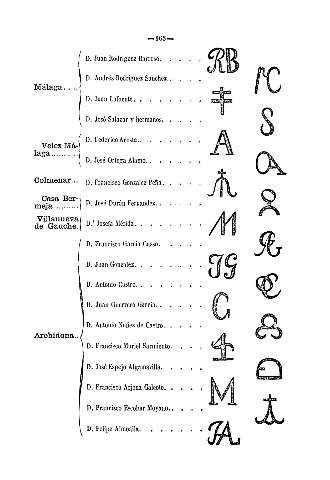 —165—
Málaga....
D. Juan Rodriguez Barroso.....
D. Andrés Rodriguez Sanchez.....
D. Juan Lafuente.......
D. José Salazar y hermanos.....
Velez Má-
laga..........
D. Federico Acosta.......
D. José Ortega Alamo......
Colmenar...
D. Francisco Gonzalez Peña.....
Casa Ber-
meja..........
D. José Durán Fernandez.....
Villanueva
de Gauche.
D.ª Josefa Mérida.......
Archidona..
D. Francisco García Casso.....
D. Juan Gonzalez.......
D. Antonio Castro.......
D. Juan Guerrero García.....
D. Antonio Nuñez de Castro.....
D. Francisco Muriel Sarmiento....
D. José Espejo Algamacilla.....
D. Francisco Arjona Galeote.....
D. Francisco Escobar Moyano.....
D. Felipe Almozila.......
RB
C
S
A
A
M
JG
C
M